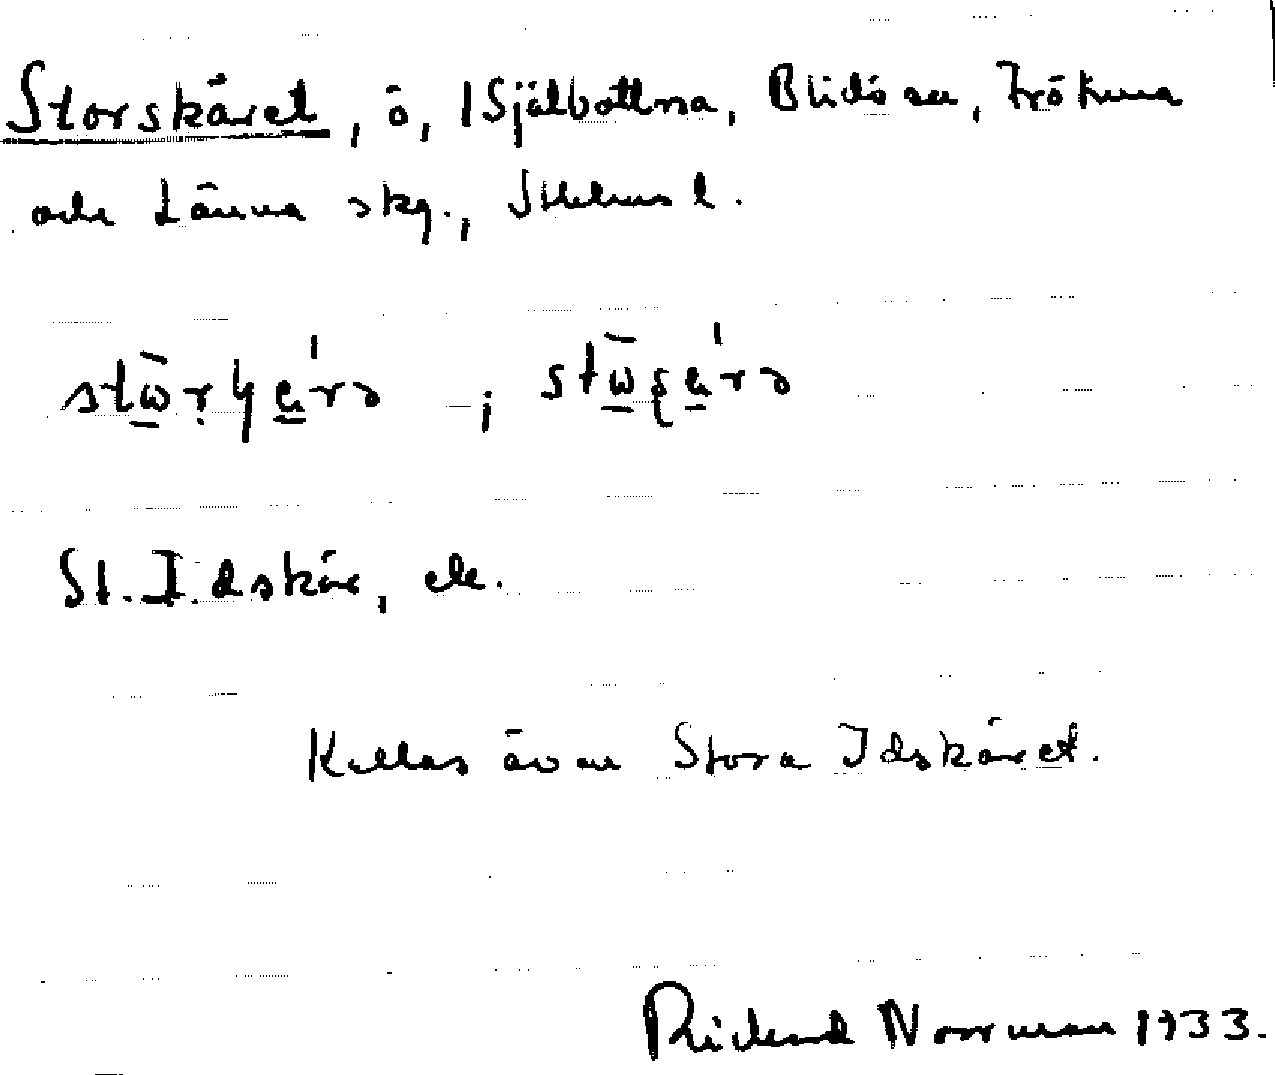 Storskäret, ö, Själbottna, Blidö sn, Frötuna
och Länna skg., Sthlms l.
St. Idskär, ek.
Kallas även Stora Idskäret.
Rickard Norrman 1933.